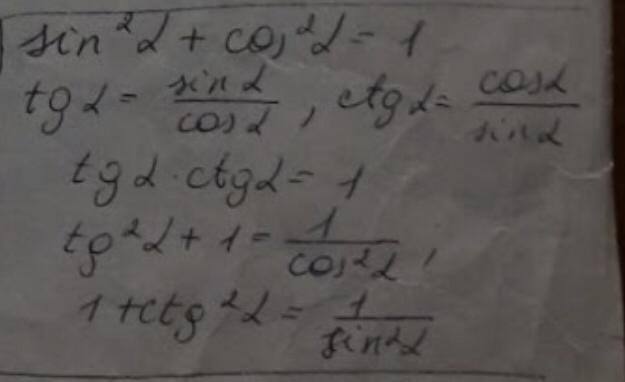 sin²α + cos²α = 1
tgα = sinα/cosα, ctgα = cosα/sinα
tgα · ctgα = 1
tg²α + 1 = 1/cos²α,
1 + ctg²α = 1/sin²α